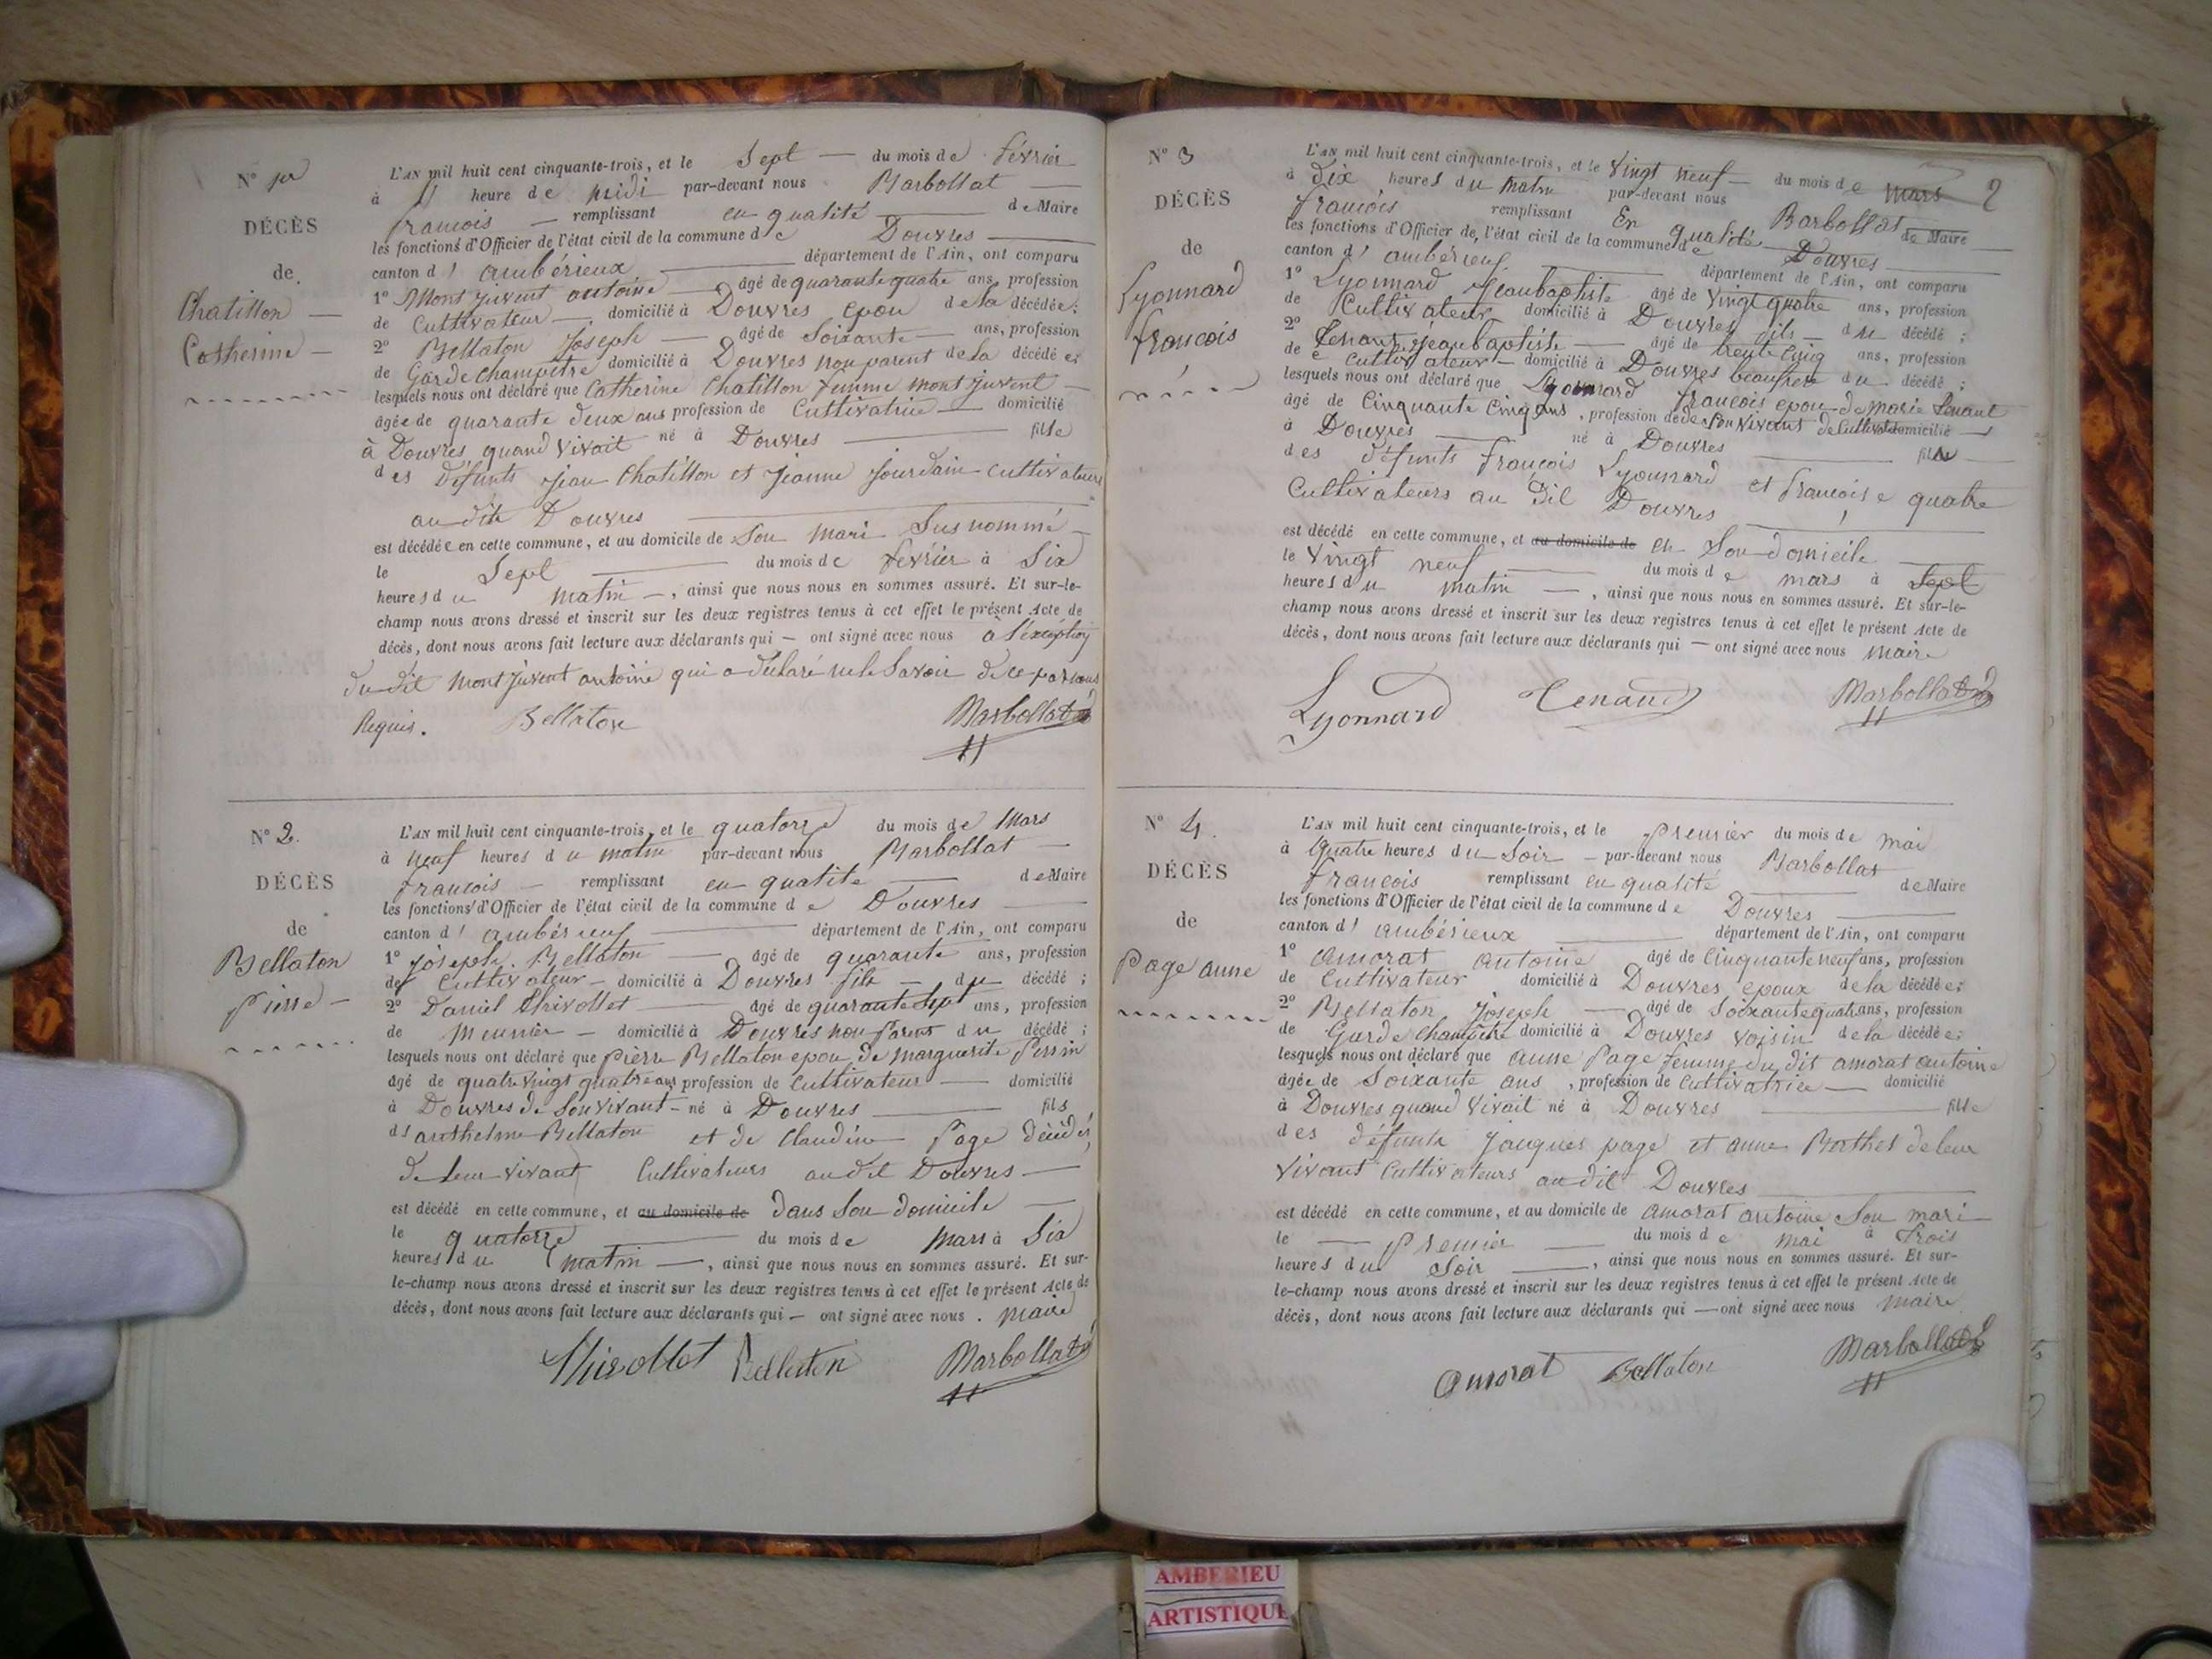 N° 1er
DÉCÈS
de
Chatillon
Catherine
L'AN mil huit cent cinquante-trois, et le Sept du mois de février
à heure de midi par-devant nous Barbollat
françois remplissant en qualité de Maire
les fonctions d'Officier de l'état civil de la commune de Douvres
canton d' ambérieux département de l'Ain, ont comparu
1° Montjuvent antoine âgé de quarante quatre ans, profession
de Cultivateur domicilié à Douvres epou de la décédée;
2° Bellaton Joseph âgé de Soixante ans, profession
de Garde champêtre domicilié à Douvres non parent de la décédée;
lesquels nous ont déclaré que Catherine Chatillon femme montjuvent
âgée de quarante deux ans profession de Cultivatrice domicilié
à Douvres quand vivait né à Douvres fille
des défunts jean Chatillon et jeanne jourdain cultivateurs
au dit Douvres
est décédée en cette commune, et au domicile de Son mari Susnommé
le Sept du mois de février à Six
heures du matin, ainsi que nous nous en sommes assuré. Et sur-le-
champ nous avons dressé et inscrit sur les deux registres tenus à cet effet le présent Acte de
décès, dont nous avons fait lecture aux déclarants qui ont signé avec nous à l'exception
du dit montjuvent antoine qui a déclaré ne le Savoir de ce par nous
Requis. Bellaton Barbollat
N° 2.
DÉCÈS
de
Bellaton
pierre
L'AN mil huit cent cinquante-trois, et le quatorze du mois de Mars
à neuf heures du matin par-devant nous Barbollat
françois remplissant en qualité de Maire
les fonctions d'Officier de l'état civil de la commune de Douvres
canton d' ambérieux département de l'Ain, ont comparu
1° joseph Bellaton âgé de quarante ans, profession
de Cultivateur domicilié à Douvres fils du décédé;
2° Daniel Thivollet âgé de quarante Sept ans, profession
de Meunier domicilié à Douvres non parent du décédé;
lesquels nous ont déclaré que pierre Bellaton epou de marguerite Persin
âgé de quatre vingt quatre ans profession de Cultivateur domicilié
à Douvres de Son vivant né à Douvres fils
d' anthelme Bellaton et de Claudine Page décédés
de leur vivant Cultivateurs au dit Douvres
est décédé en cette commune, et au domicile de dans Son domicile
le quatorze du mois de Mars à Six
heures du matin, ainsi que nous nous en sommes assuré. Et sur-
le-champ nous avons dressé et inscrit sur les deux registres tenus à cet effet le présent Acte de
décès, dont nous avons fait lecture aux déclarants qui ont signé avec nous. maire
Thivollet Bellaton Barbollat
2
N° 3
DÉCÈS
de
Lyonnard
françois
L'AN mil huit cent cinquante-trois, et le Vingt neuf du mois de mars
à dix heures du matin par-devant nous Barbollat
françois remplissant En qualité de Maire
les fonctions d'Officier de l'état civil de la commune de Douvres
canton d' ambérieux département de l'Ain, ont comparu
1° Lyonnard Jean baptiste âgé de Vingt quatre ans, profession
de Cultivateur domicilié à Douvres fils du décédé;
2° Tenant jean baptiste âgé de trente cinq ans, profession
de cultivateur domicilié à Douvres beaufrere du décédé;
lesquels nous ont déclaré que Lyonnard françois epou de marie Tenant
âgé de Cinquante Cinq ans, profession de de Son vivant de Cultivat domicilié
à Douvres né à Douvres fils
des défunts françois Lyonnard et françoise quatre
Cultivateurs au dit Douvres
est décédé en cette commune, et au domicile de en Son domicile
le Vingt neuf du mois de mars à Sept
heures du matin, ainsi que nous nous en sommes assuré. Et sur-le-
champ nous avons dressé et inscrit sur les deux registres tenus à cet effet le présent Acte de
décès, dont nous avons fait lecture aux déclarants qui ont signé avec nous maire
Lyonnard Tenand Barbollat
N° 4.
DÉCÈS
de
Page anne
L'AN mil huit cent cinquante-trois, et le premier du mois de mai
à Quatre heures du Soir par-devant nous Barbollat
françois remplissant en qualité de Maire
les fonctions d'Officier de l'état civil de la commune de Douvres
canton d' ambérieux département de l'Ain, ont comparu
1° Amorat Antoine âgé de Cinquante neuf ans, profession
de Cultivateur domicilié à Douvres epoux de la décédée;
2° Bellaton Joseph âgé de Soixante quatre ans, profession
de Garde champêtre domicilié à Douvres voisin de la décédée;
lesquels nous ont déclaré que anne Page femme du dit amorat antoine
âgée de Soixante ans, profession de Cultivatrice domicilié
à Douvres quand vivait né à Douvres fille
des défunts jacques page et anne Berthet de leur
vivant Cultivateurs au dit Douvres
est décédé en cette commune, et au domicile de amorat antoine Son mari
le Premier du mois de mai à trois
heures du Soir, ainsi que nous nous en sommes assuré. Et sur-
le-champ nous avons dressé et inscrit sur les deux registres tenus à cet effet le présent Acte de
décès, dont nous avons fait lecture aux déclarants qui ont signé avec nous maire
amorat Bellaton Barbollat
AMBERIEU
ARTISTIQUE